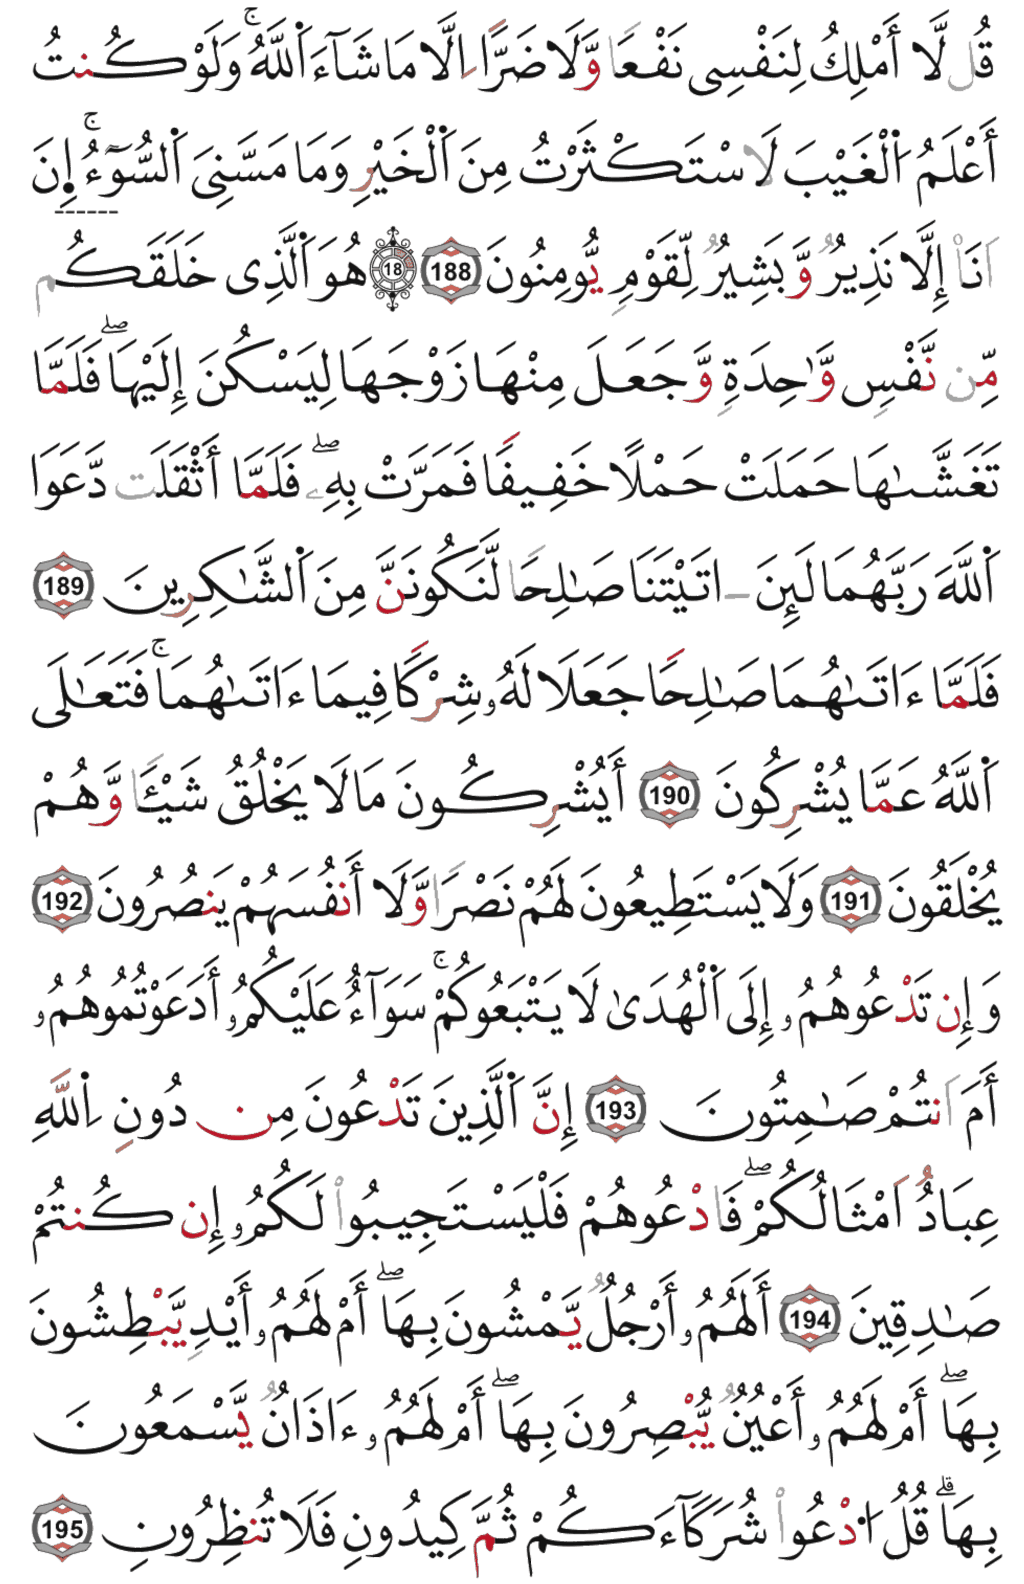 قُل لَّا أَمْلِكُ لِنَفْسِى نَفْعًا وَّلَا ضَرًّا اِلَّا مَا شَآءَ اَ۬للَّهُ ۚ وَلَوْ كُنتُ
أَعْلَمُ اُ۬لْغَيْبَ لَاسْتَكْثَرْتُ مِنَ اَ۬لْخَيْرِ وَمَا مَسَّنِىَ اَ۬لسُّوٓءُ ۚ إِنَ
اَنَا۠ إِلَّا نَذِيرٌ وَّبَشِيرٌ لِّقَوْمٍ يُّومِنُونَ 188 18 هُوَ اَ۬لَّذِى خَلَقَكُم
مِّن نَّفْسٍ وَّٰحِدَةٍ وَّجَعَلَ مِنْهَا زَوْجَهَا لِيَسْكُنَ إِلَيْهَا ۖ فَلَمَّا
تَغَشَّىٰهَا حَمَلَتْ حَمْلًا خَفِيفًا فَمَرَّتْ بِهِۦ ۖ فَلَمَّا أَثْقَلَت دَّعَوَا
اَ۬للَّهَ رَبَّهُمَا لَئِنَ ـاتَيْتَنَا صَٰلِحًا لَّنَكُونَنَّ مِنَ اَ۬لشَّٰكِرِينَ 189
فَلَمَّا ءَاتَىٰهُمَا صَٰلِحًا جَعَلَا لَهُۥ شِرْكًا فِيمَا ءَاتَىٰهُمَا ۚ فَتَعَٰلَى
اَ۬للَّهُ عَمَّا يُشْرِكُونَ 190 أَيُشْرِكُونَ مَا لَا يَخْلُقُ شَيْـًٔا وَّهُمْ
يُخْلَقُونَ 191 وَلَا يَسْتَطِيعُونَ لَهُمْ نَصْرًا وَّلَا أَنفُسَهُمْ يَنصُرُونَ 192
وَإِن تَدْعُوهُمُۥ إِلَى اَ۬لْهُدَىٰ لَا يَتْبَعُوكُمْ ۚ سَوَآءٌ عَلَيْكُمُۥ أَدَعَوْتُمُوهُمُۥ
أَمَ اَنتُمْ صَٰمِتُونَ 193 إِنَّ اَ۬لَّذِينَ تَدْعُونَ مِن دُونِ اِ۬للَّهِ
عِبَادٌ اَمْثَالُكُمْ ۖ فَادْعُوهُمْ فَلْيَسْتَجِيبُوا۟ لَكُمُۥ إِن كُنتُمْ
صَٰدِقِينَ 194 أَلَهُمُۥ أَرْجُلٌ يَّمْشُونَ بِهَا ۖ أَمْ لَهُمُۥ أَيْدٍ يَّبْطِشُونَ
بِهَا ۖ أَمْ لَهُمُۥ أَعْيُنٌ يُّبْصِرُونَ بِهَا ۖ أَمْ لَهُمُۥ ءَاذَانٌ يَّسْمَعُونَ
بِهَا ۗ قُلُ اُ۟دْعُوا۟ شُرَكَآءَكُمْ ثُمَّ كِيدُونِ فَلَا تُنظِرُونِ 195